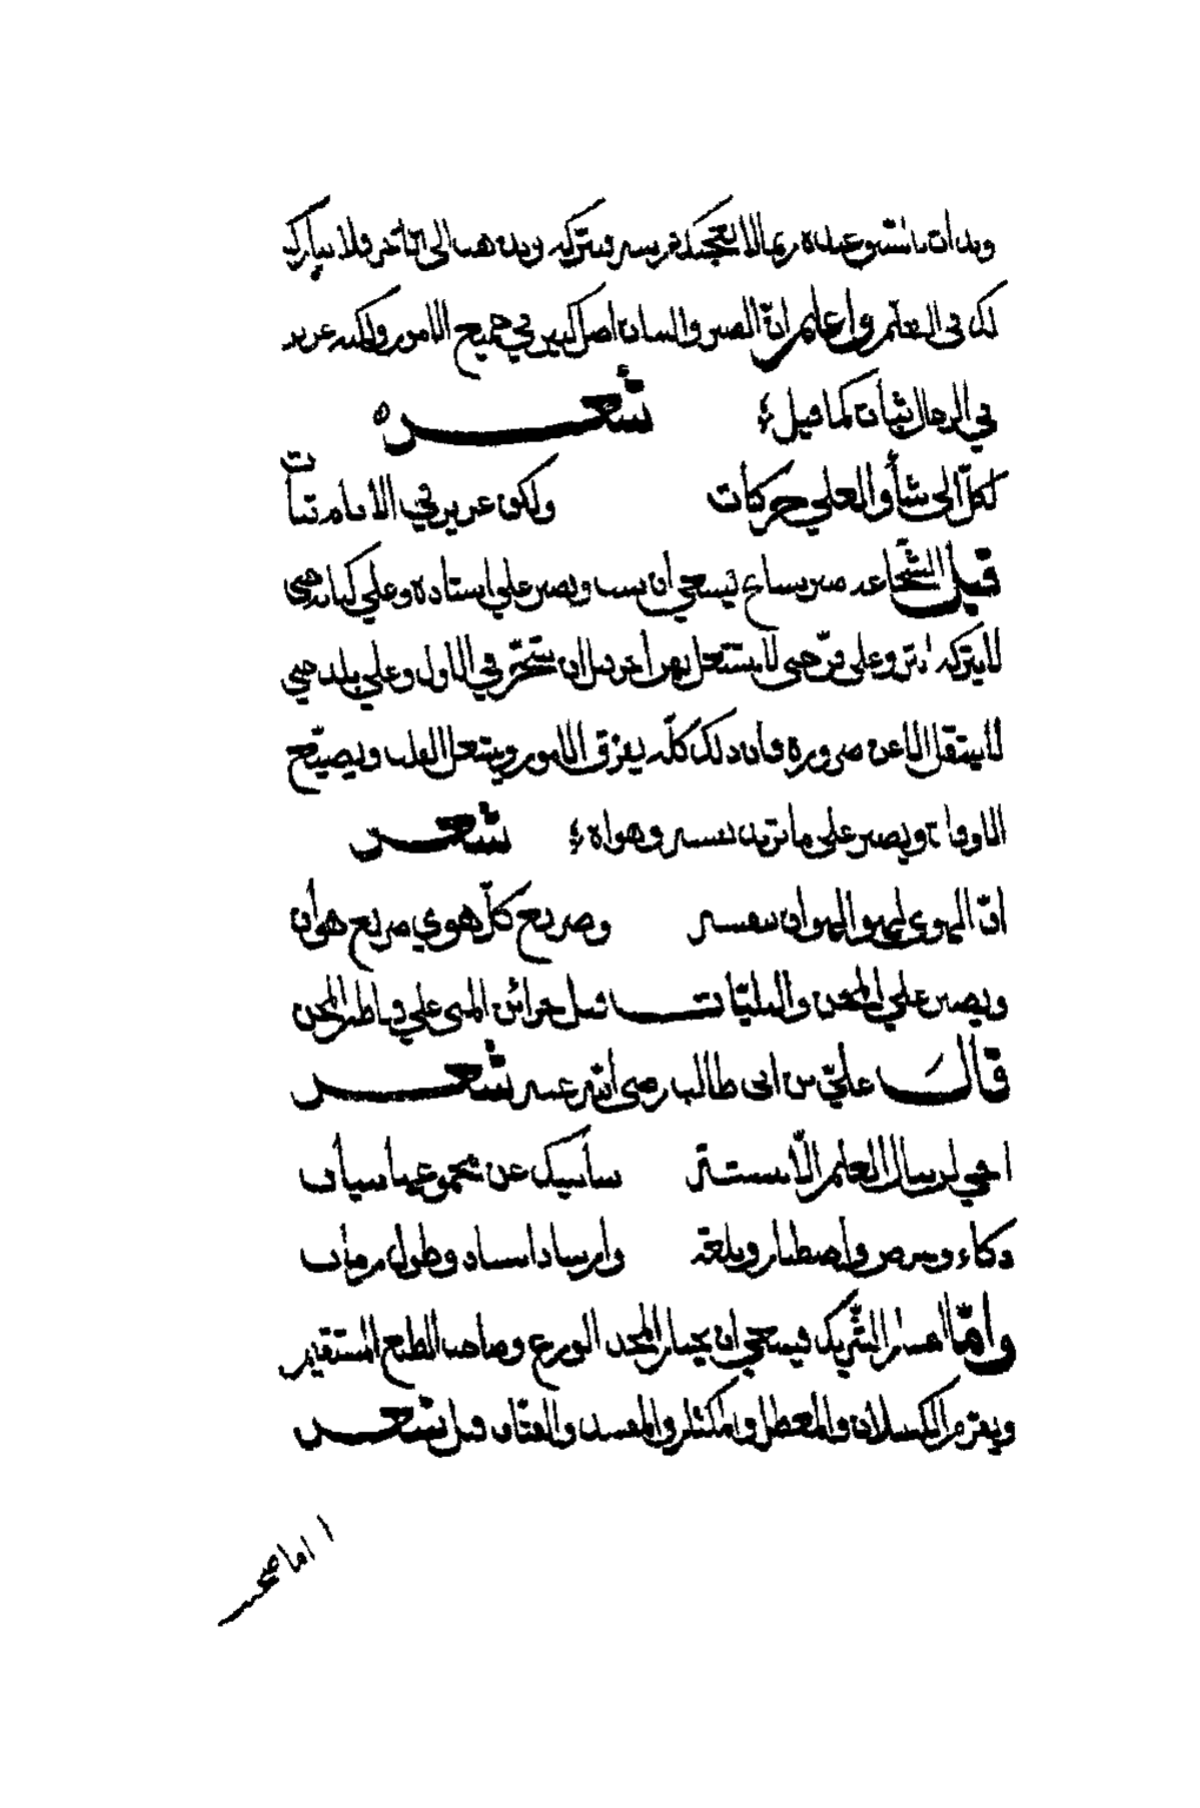 وبدات بالسبق عنده ربما لا يعجبك درسه فتتركه وتذهب الى اخر فلا يبارك
لك في التعلم واعلم ان الصبر والثبات اصل كبير في جميع الامور ولكنه عزيز
في الرجال ثبات كما قيل شعر
لكل الى شأو العلى حركات ولكن عزيز في الانام ثبات
قيل الشجاعة صبر ساعة فينبغي أن يثبت ويصبر على استاذه وعلى كتاب حتى
لا يتركه ابتر وعلى فن حتى لا يشتغل بفن أخر قبل ان يتبحر في الاول وعلى بلد حتى
لا ينتقل الا عن ضرورة فان ذلك كله يفرق الامور ويشغل القلب ويضيع
الاوقات ويصبر على ما تريد نفسه وهواه شعر
ان الهوى لهو الهوان بنفسه وصريع كل هوي صريع هوان
ويصبر علي المحن والبليات قيل خزائن المنى علي قناطر المحن
قال علي بن ابى طالب رضى الله عنه شعر
اخي لن تنال العلم الا بستة سأنبيك عن مجموعها ببيان
ذكاء وحرص واصطبار وبلغة وارشاد استاد وطول زمان
واما اختيار الشريك فينبغي ان يختار المجد الورع وصاحب الطبع المستقيم
ويفر من الكسلان والمعطل والمكثار والمفسد والفتان قيل شعر